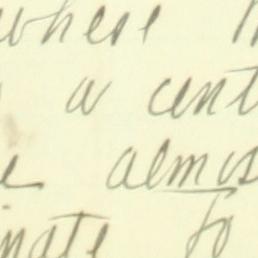 where
a cent
almos
inate to